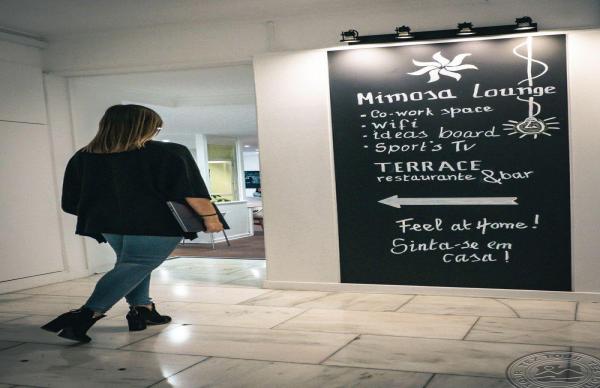 Mimosa Lounge
• Co-work space
• Wifi
• ideas board
• Sport's Tv
TERRACE
restaurante & bar
Feel at home!
Sinta-se em
casa!